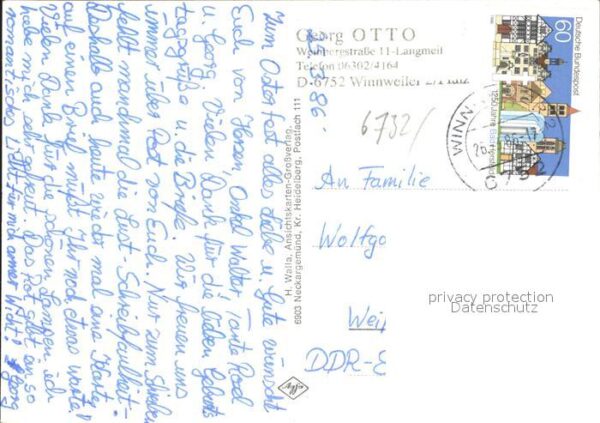 Georg OTTO
Weinbergstraße 11-Langmeil
Telefon 06302/4164
D-6752 Winnweiler 2/Pfalz
86.
Zum Osterfest alles Liebe u. Gute wünscht
Euch von Herzen Onkel Walter, Tante Rosel
u. Georg. Viel Dank für die lieben Geburts
tagsgrüße u. die Briefe. Wir freuen uns
immer über Post von Euch. Nur zum Schreiben
fehlt manchmal die Lust - Schreibfaulheit -
Deshalb auch heute wieder mal eine Karte.
auf einen Brief müßt Ihr noch etwas warten!
Vielen Dank für die schönen ich
habe mich sehr gefreut. Das ist so
romantisches Licht für mich armen Wicht! Georg
H. Walla, Ansichtskarten-Großverlag,
6903 Neckargemünd, Kr. Heidelberg, Postfach 111
6732/
An Familie
Wolfg
Wei
DDR-
Deutsche Bundespost
60
1250 Jahre Bad Hersfeld
WINN
privacy protection
Datenschutz